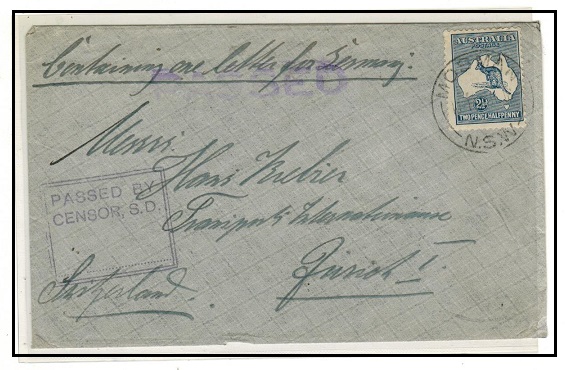 Containing one letter for Germany.
PASSED
AUSTRALIA
POSTAGE
2½
TWO PENCE HALFPENNY
MOSMAN
N.S.W.
Messrs.
Hans
PASSED BY
CENSOR, S.D.
Transports Internationaux
Zürich I.
Switzerland.